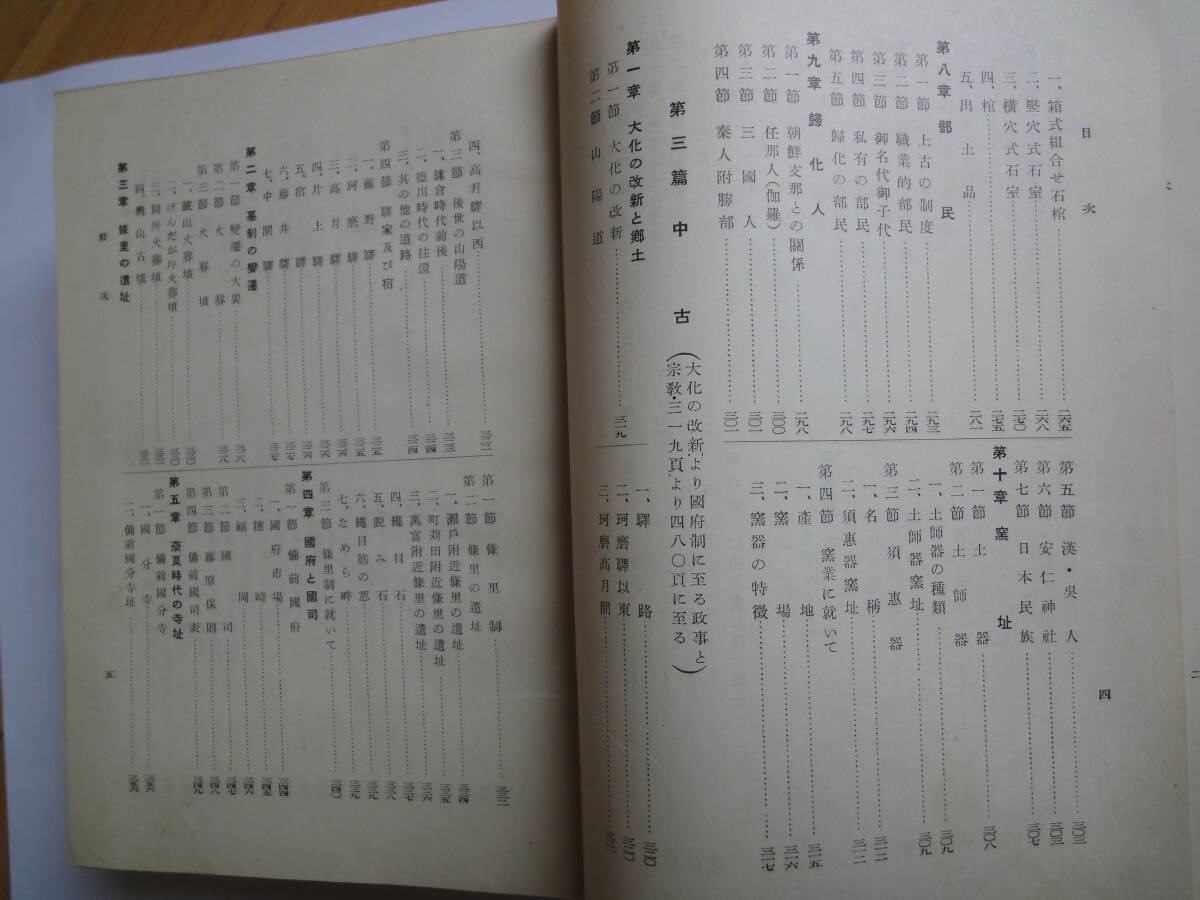 目次
一、箱式組合せ石棺……二六五
二、竪穴式石室……二六八
三、横穴式石室……二七〇
四、棺……二七五
五、出土品……二八一
第八章 部民
第一節 上古の制度……二九三
第二節 職業的部民……二九四
第三節 御名代御子代……二九六
第四節 私有の部民……二九七
第五節 歸化の部民……二九八
第九章 歸化人
第一節 朝鮮支那との關係……二九八
第二節 任那人(伽羅)……三〇〇
第三節 三國人……三〇一
第四節 秦人附勝部……三〇一
第五節 漢・吳人……三〇三
第六節 安仁神社……三〇三
第七節 日本民族……三〇七
第十章 窯址
第一節 土器……三〇八
第二節 土師器
一、土師器の種類……三〇九
二、土師器窯址……三〇九
第三節 須惠器
一、名稱……三一二
二、須惠器窯址……三一二
第四節 窯業に就いて
一、產地……三一五
二、窯場……三一六
三、窯器の特徴……三一七
第三篇 中古(大化の改新より國府制に至る政事と宗教・三一九頁より四八〇頁に至る)
第一章 大化の改新と鄕土
第一節 大化の改新……三一九
第二節 山陽道
一、驛路……三二〇
二、珂磨驛以東……三二〇
三、珂磨高月間
四
四、高月驛以西
第三節 後世の山陽道
一、鎌倉時代前後……三二三
二、德川時代の往還……三二四
三、其の他の道路……三二四
第四節 驛家及び宿
一、藤野驛……三二五
二、珂磨驛……三二五
三、高月驛……三二六
四、片上驛……三二六
五、宿驛……三二六
六、藤井驛……三二七
七、中間驛……三二七
第二章 墓制の變遷
第一節 變遷の大要……三二八
第二節 火葬……三二八
第三節 火葬墳
一、鍍山火葬墳……三三〇
二、げんだが坪火葬墳……三三〇
三、別所火葬墳
四、奧山古墳
第三章 條里の遺址
第一節 條里制
第二節 條里の遺址
一、瀨戶附近條里の遺址……三三四
二、町苅田附近條里の遺址……三三五
三、萬富附近條里の遺址……三三六
四、繩目石……三三七
五、睨み石……三三八
六、繩目筋の窓……三三九
七、なめら畔……三三九
第三節 條里制に就いて……三四〇
第四章 國府と國司
第一節 備前國府
一、國府市場……三四四
二、穗崎……三四五
三、福岡……三四六
第二節 國司……三四七
第三節 藤原保則……三四八
第四節 備前國司表……三四九
第五章 奈良時代の寺址
第一節 備前國分寺
一、國分寺……三五六
二、備前國分寺址……三五六
目次
五